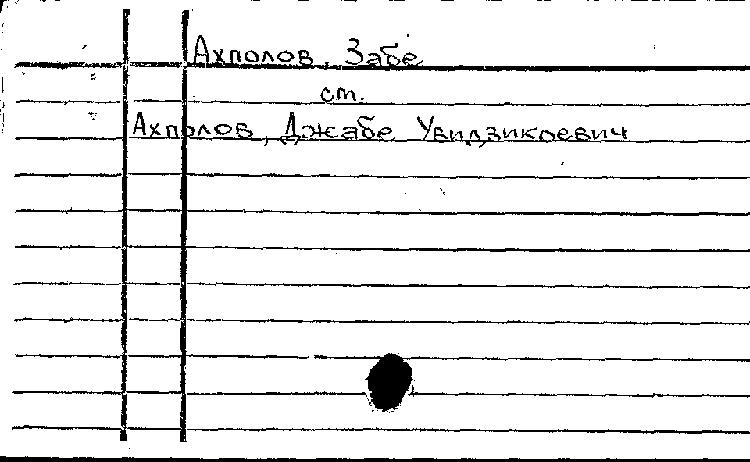 Ахполов, Забе
ст.
Ахполов, Джабе Увидзикоевич